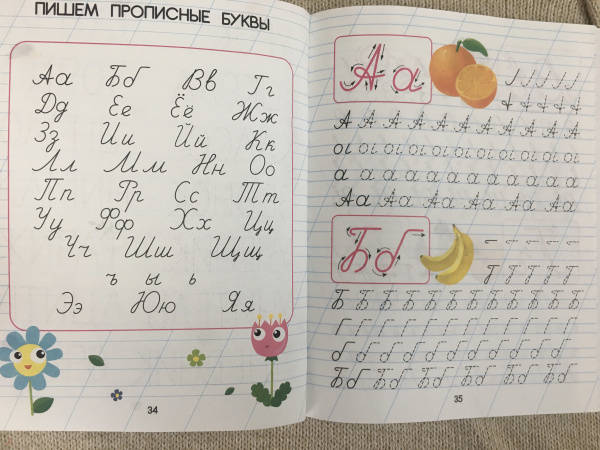 ПИШЕМ ПРОПИСНЫЕ БУКВЫ
Аа Бб Вв Гг
Дд Ее Ёё Жж
Зз Ии Йй Кк
Лл Мм Нн Оо
Пп Рр Сс Тт
Уу Фф Хх Цц
Чч Шш Щщ
ъ ы ь
Ээ Юю Яя
34
Аа
А А А А А А А А А А А
а а а а а а а а а а
Аа Аа Аа Аа Аа Аа
Бб
Б Б Б Б Б Б Б Б Б Б Б
б б б б б б б б б б
Бб Бб Бб Бб Бб Бб
35